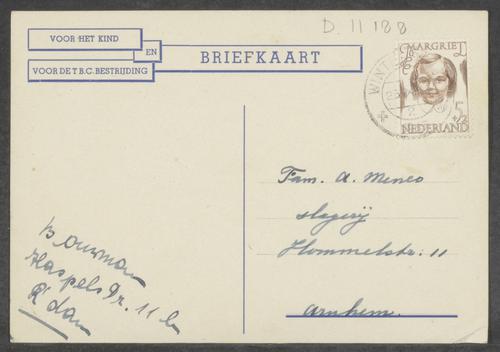 D. 11188
VOOR HET KIND
EN
VOOR DE T.B.C. BESTRIJDING
BRIEFKAART
MARGRIET
5
NEDERLAND
Fam. A. Menco
slagerij
Hommelstr: 11
Arnhem.
Bouwman
Haspels Dr. 11 b
R'dam